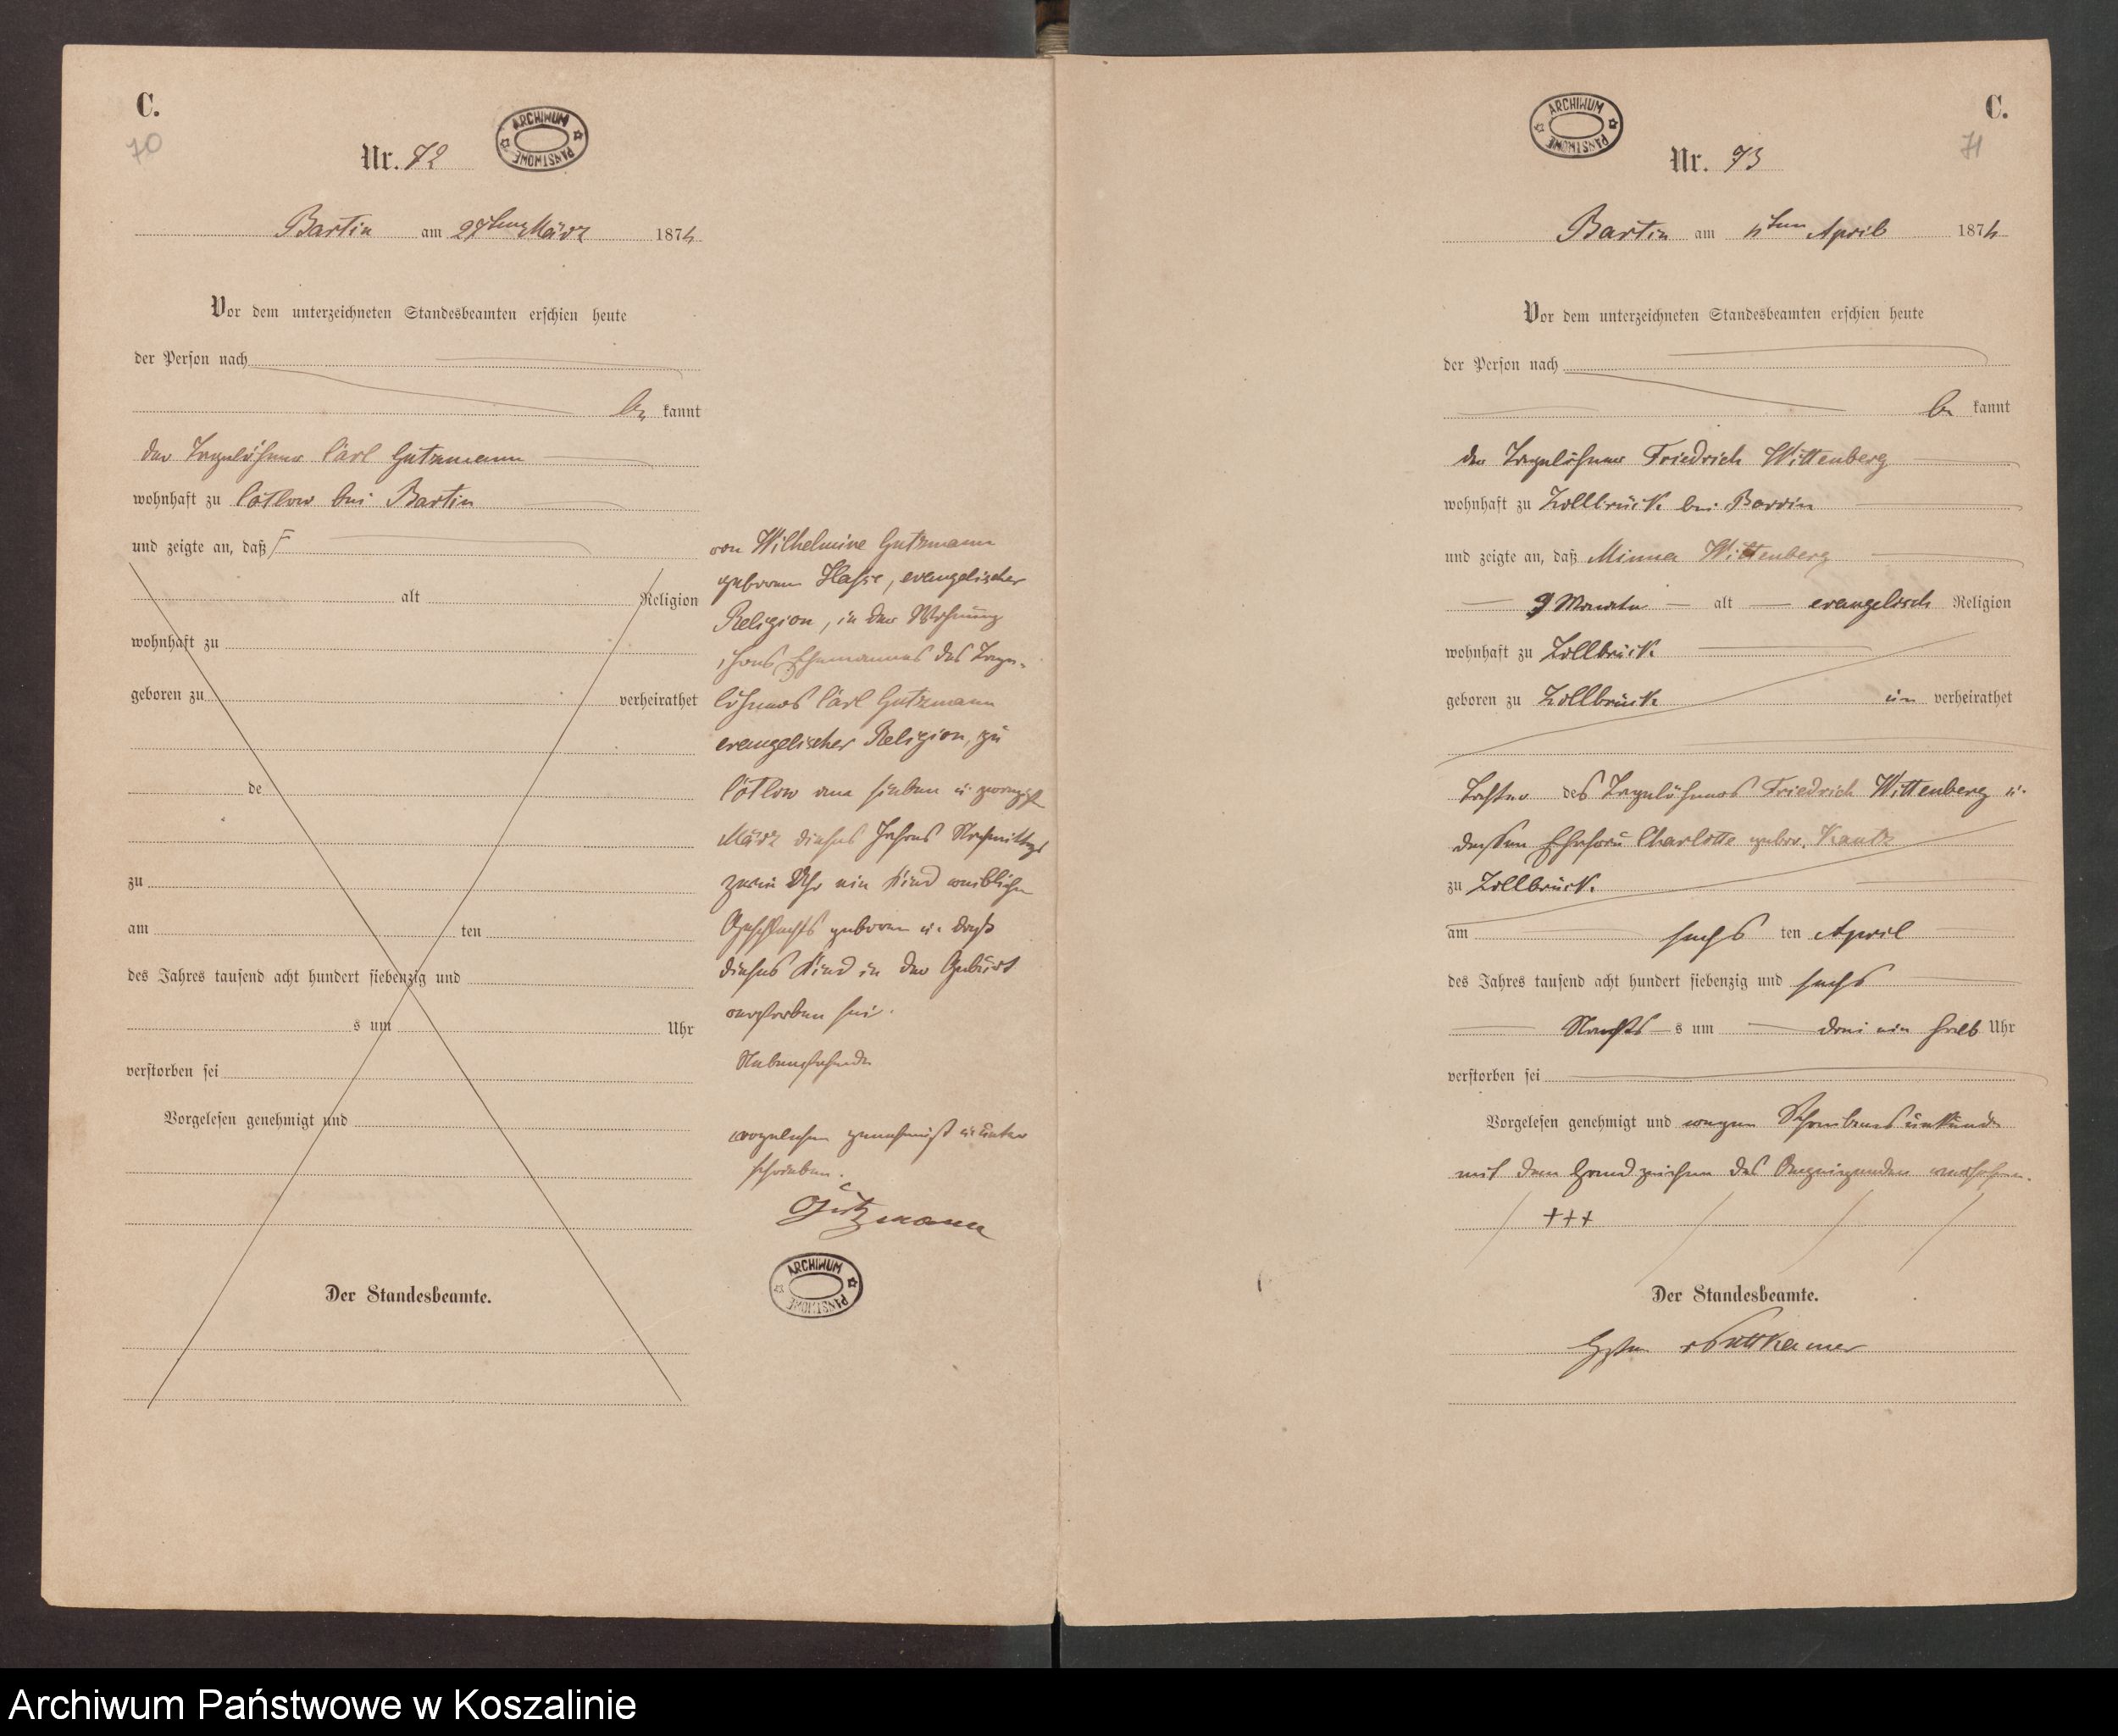 C.
70
Nr. 72
ARCHIWUM PAŃSTWOWE
Bartin am 27ten März 187
Vor dem unterzeichneten Standesbeamten erschien heute
der Person nach
be kannt
der Tagelöhner Carl Gutzmann
wohnhaft zu Cötlow bei Bartin
und zeigte an, daß
alt Religion
wohnhaft zu
geboren zu verheirathet
de
zu
am ten
des Jahres tausend acht hundert siebenzig und
s um Uhr
verstorben sei
Vorgelesen genehmigt und
Der Standesbeamte.
von Wilhelmine Gutzmann
geborene Hasse, evangelischer
Religion, in der Wohnung
ihres Ehemannes des Tage-
löhners Carl Gutzmann
evangelischer Religion, zu
Cötlow am sieben u zwanzigst
März dieses Jahres Nachmittags
zwei Uhr ein Kind weiblichen
Geschlechts geboren u. daß
dieses Kind in der Geburt
verstorben sei.
Nebenstehende
vorgelesen genehmigt u unter
schrieben.
Gützmann
ARCHIWUM PAŃSTWOWE
ARCHIWUM PAŃSTWOWE
C.
71
Nr. 73
Bartin am ten April 187
Vor dem unterzeichneten Standesbeamten erschien heute
der Person nach
be kannt
der Tagelöhner Friedrich Wittenberg
wohnhaft zu Zollbrück bei
und zeigte an, daß Minna Wittenberg
9 Monate alt evangelisch Religion
wohnhaft zu Zollbrück
geboren zu Zollbrück un verheirathet
Tochter des Tagelöhners Friedrich Wittenberg u.
dessen Ehefrau Charlotte gebor.
zu Zollbrück.
am sechs ten April
des Jahres tausend acht hundert siebenzig und sechs
Nachts s um drei ein halb Uhr
verstorben sei
Vorgelesen genehmigt und wegen Schreibensunkunde
mit dem Handzeichen des Anzeigenden versehen.
+++
Der Standesbeamte.
Puttkamer
Archiwum Państwowe w Koszalinie